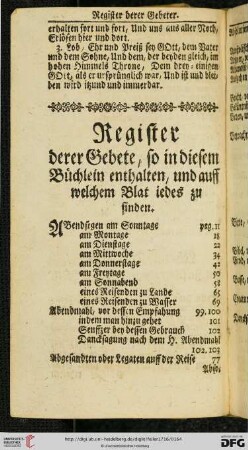 Register derer Gebeter.
erhalten fort und fort, Und uns aus aller Noth,
Erlösen hier und dort.
3. Lob, Ehr und Preiß sey GOtt, dem Vater
und dem Sohne, Und dem, der beyden gleich, im
hohen Himmels Throne, Dem drey-einigen
GOtt, als er ursprünglich war, Und ist und blei-
ben wird itzund und immerdar.
Register
derer Gebete, so in diesem
Büchlein enthalten, und auff
welchem Blat iedes zu
finden.
ABendsegen am Sonntage pag. 11
am Montage 18
am Dienstage 22
am Mittwoche 34
am Donnerstage 42
am Freytage 50
am Sonnabend 58
eines Reisenden zu Lande 65
eines Reisenden zu Wasser 69
Abendmahl, vor dessen Empfahung 99. 100
indem man hinzu gehet 101
Seuffzer bey dessen Gebrauch 102
Dancksagung nach dem H. Abendmahl
102. 103
Abgesandten oder Legaten auff der Reise 77
Abso-
http://digi.ub.uni-heidelberg.de/diglit/
DFG